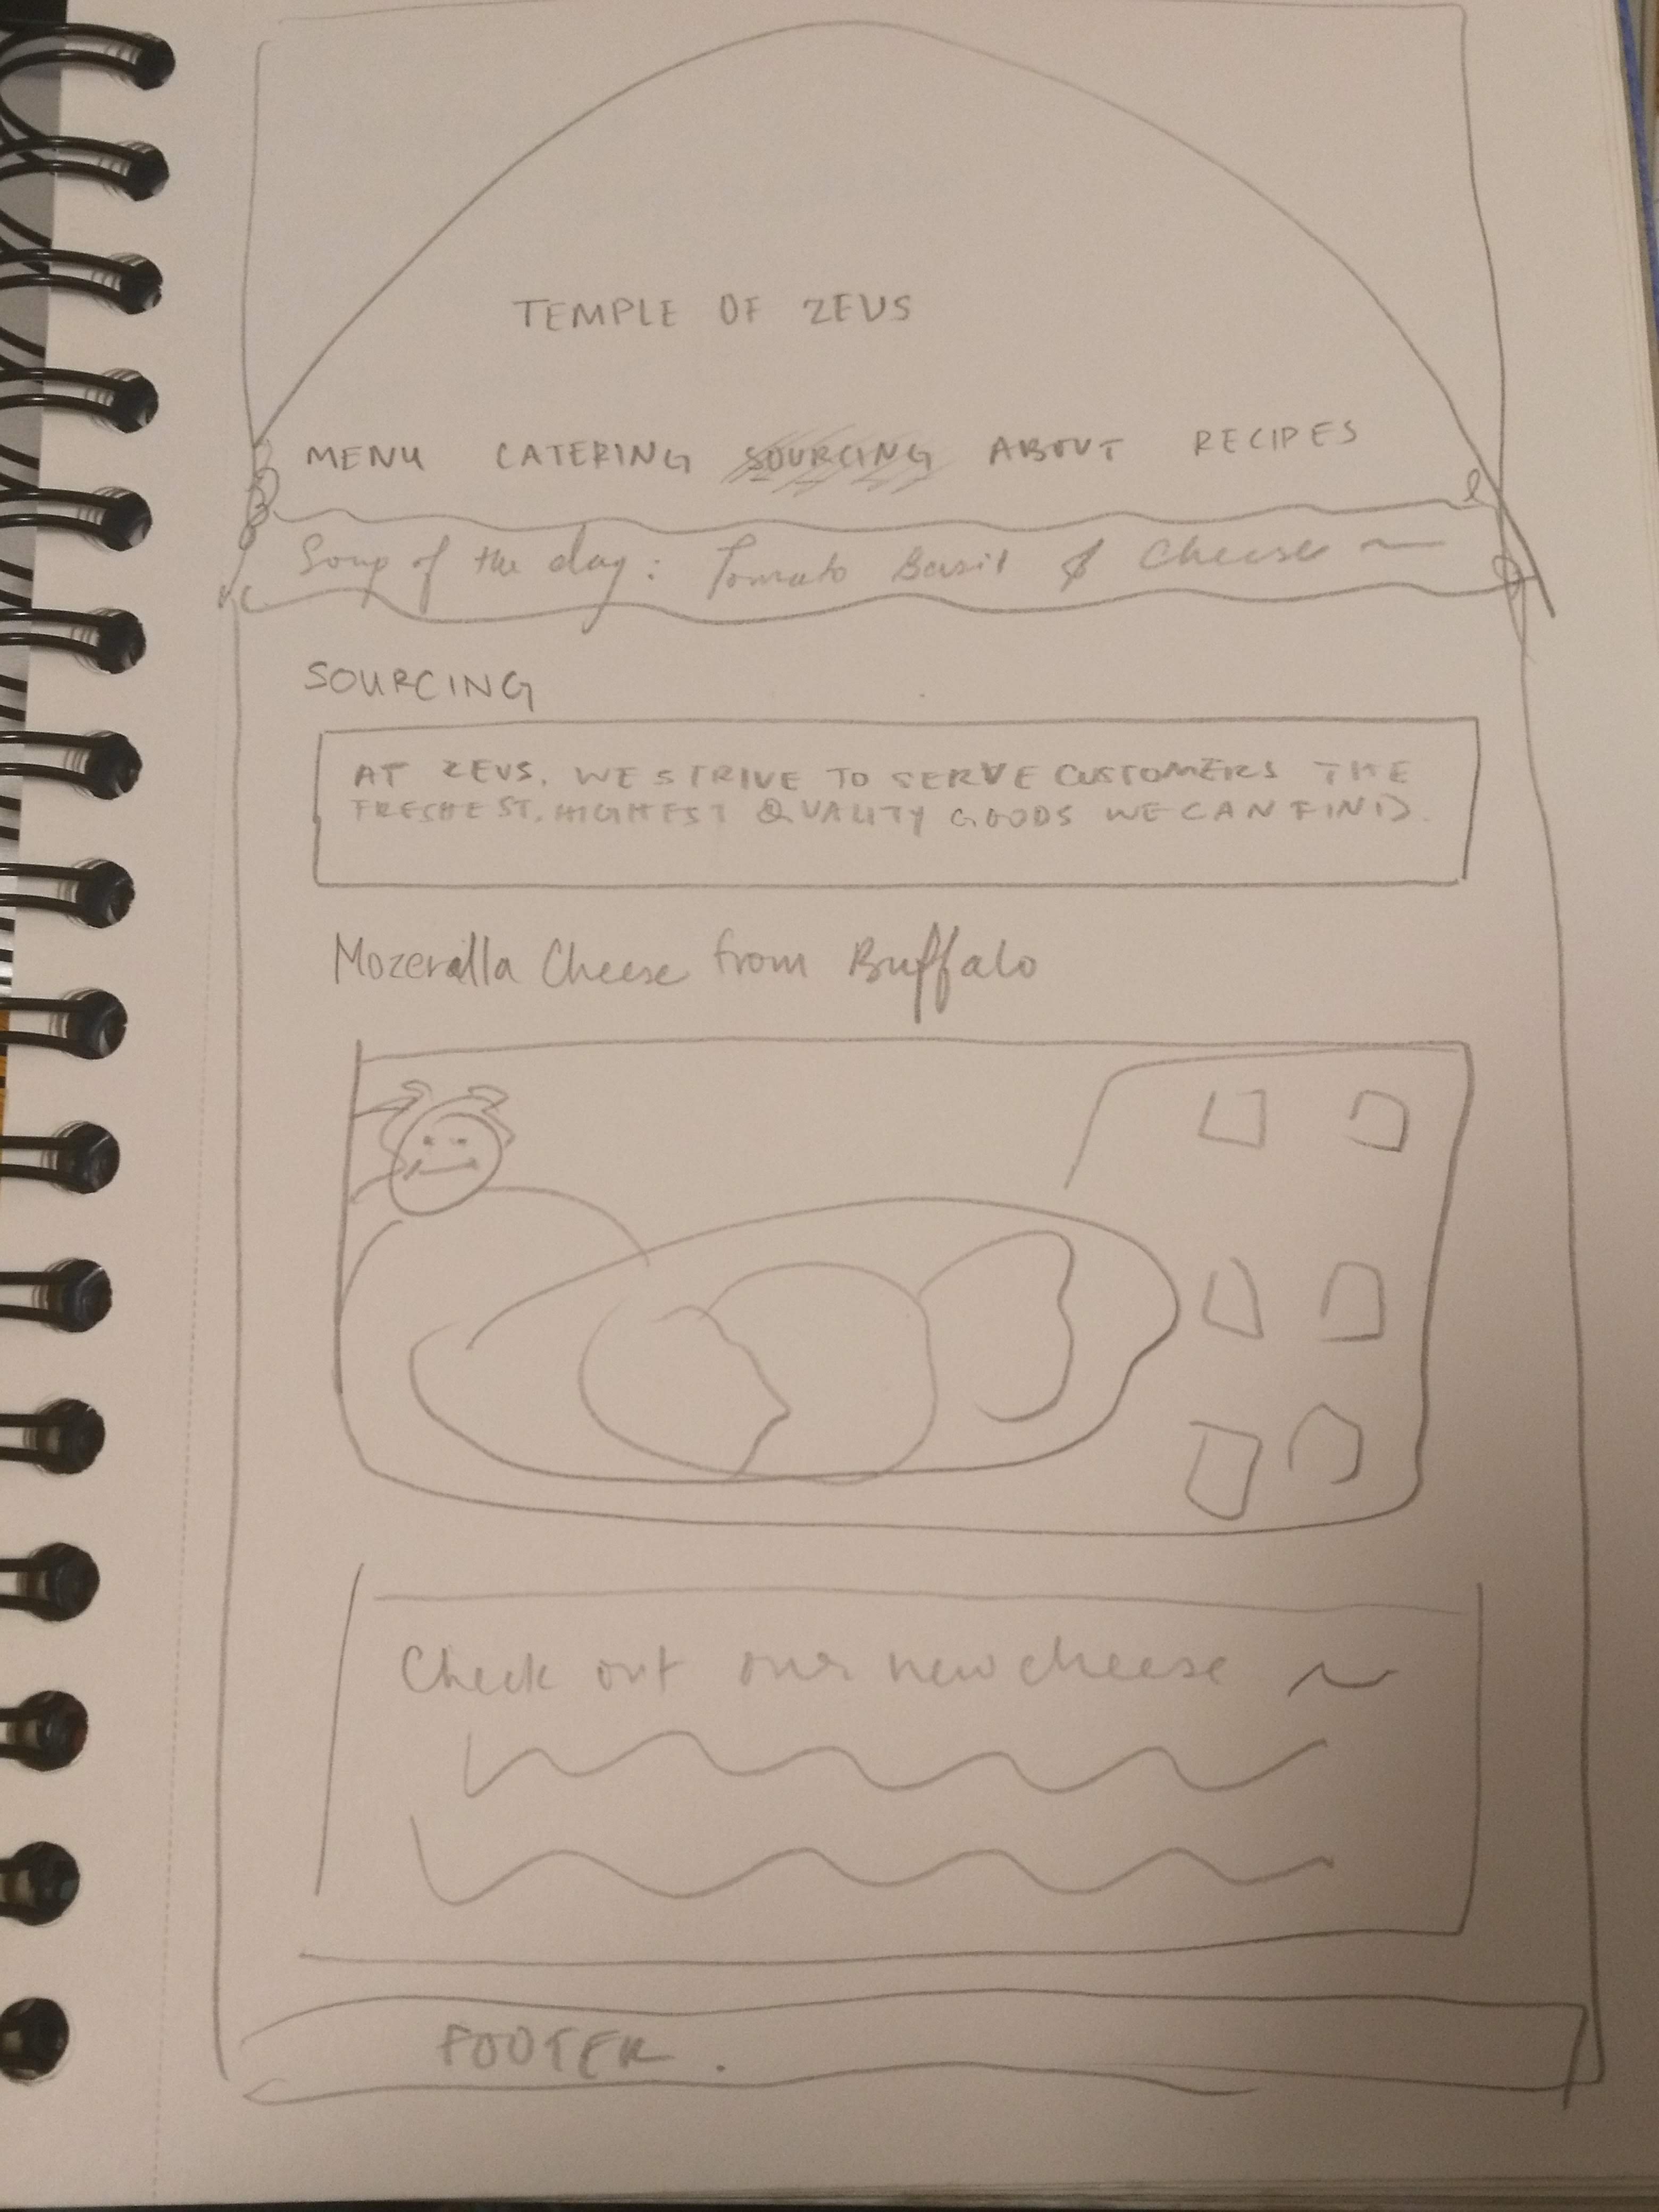 TEMPLE OF ZEUS
MENU CATERING SOURCING ABOUT RECIPES
Soup of the day: Tomato Basil & Cheese ~
SOURCING
AT ZEUS, WE STRIVE TO SERVE CUSTOMERS THE
FRESHEST, HIGHEST QUALITY GOODS WE CAN FIND.
Mozeralla Cheese from Buffalo
Check out our new cheese ~
FOOTER.